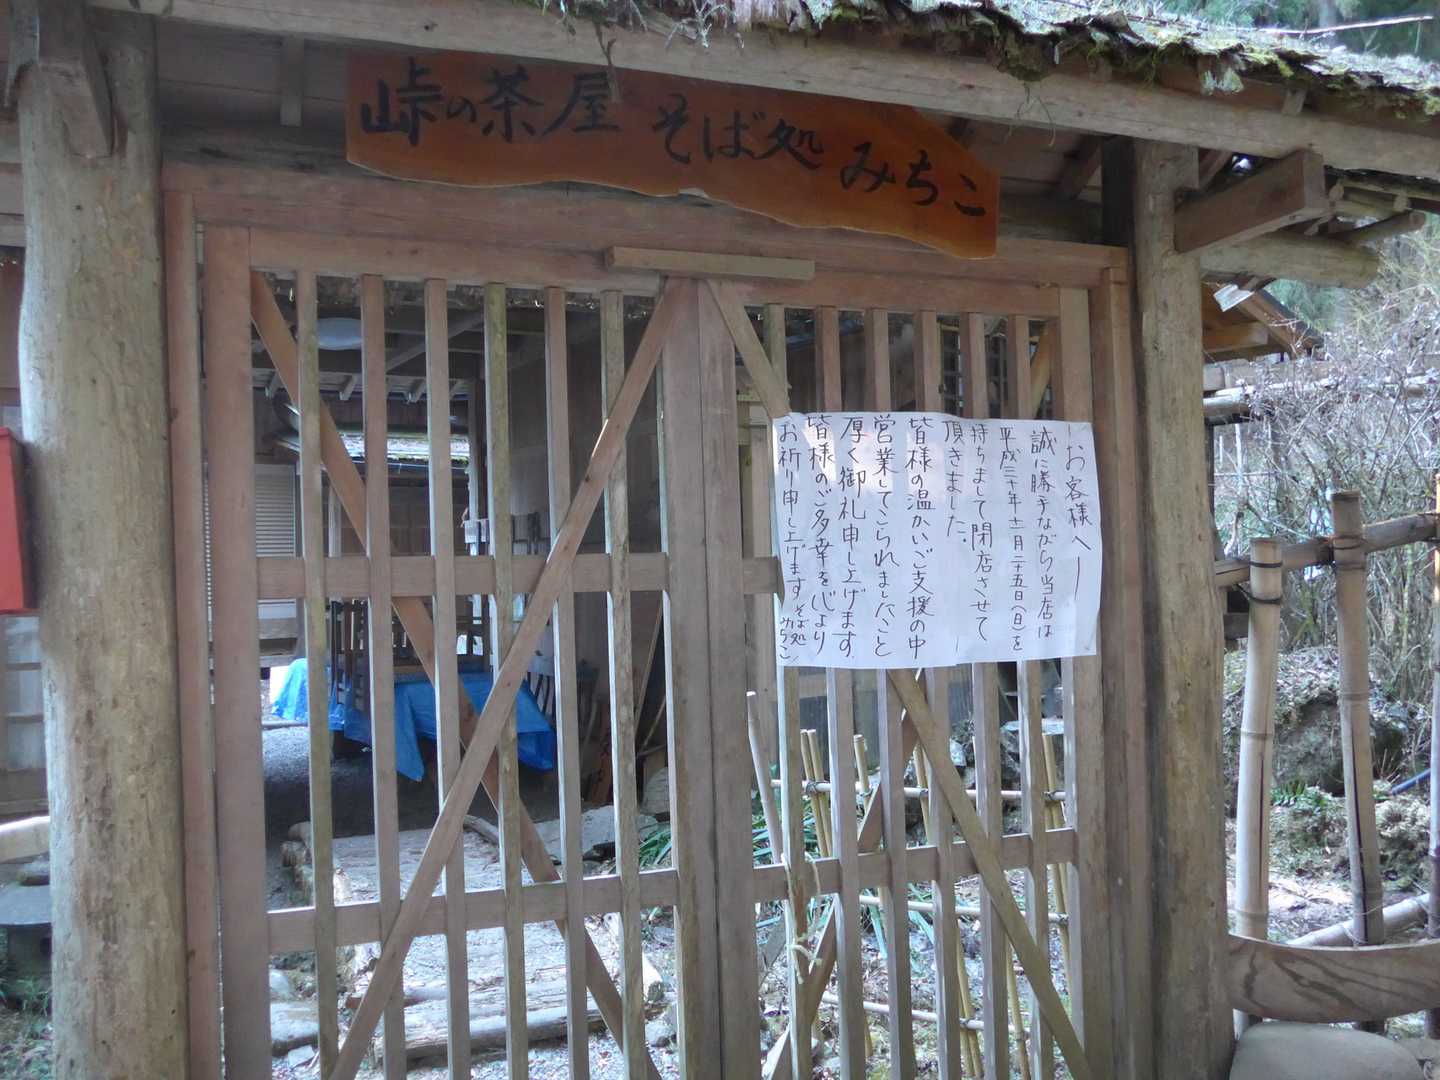 峠の茶屋 そば処 みちこ
お客様へ
誠に勝手ながら当店は
平成三十年十一月二十五日(日)を
持ちまして閉店させて
頂きました。
皆様の温かいご支援の中
営業してこられましたこと
厚く御礼申し上げます。
皆様のご多幸を心より
お祈り申し上げます
そば処
みちこ